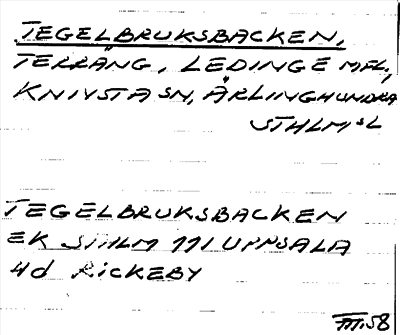 TEGELBRUKSBACKEN,
TERRÄNG, LEDINGE MFL,
KNIVSTA SN, ÄRLINGHUNDRA
STHLMS L
TEGELBRUKSBACKEN
EK STHLM 111 UPPSALA
4d RICKEBY
58